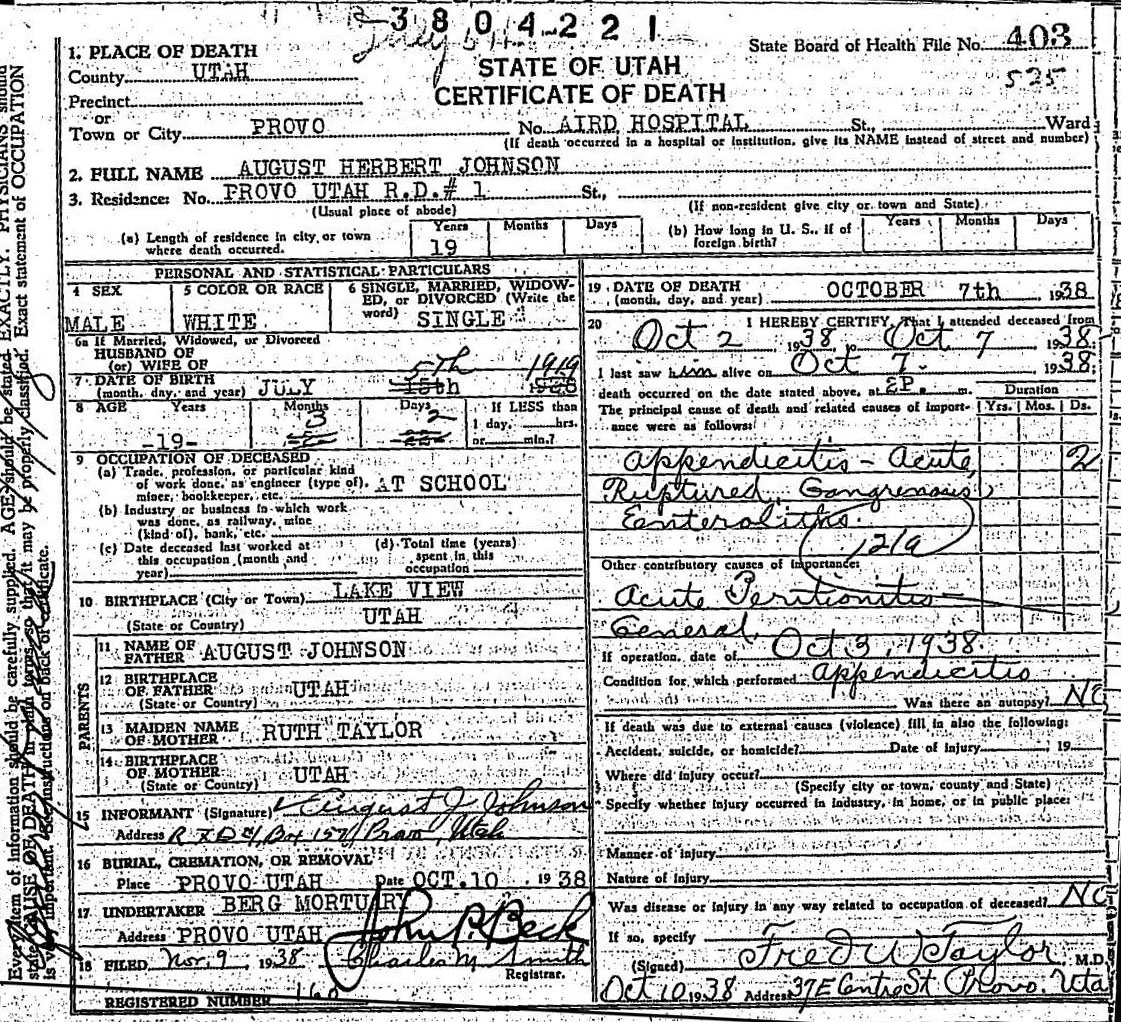 3804221
State Board of Health File No. 403
525
1. PLACE OF DEATH
County UTAH
STATE OF UTAH
CERTIFICATE OF DEATH
Precinct
or
Town or City PROVO No. AIRD HOSPITAL St., Ward
(If death occurred in a hospital or institution, give its NAME instead of street and number)
2. FULL NAME AUGUST HERBERT JOHNSON
3. Residence: No. PROVO UTAH R.D.# 1 St.,
(Usual place of abode) (If non-resident give city or town and State)
(a) Length of residence in city or town where death occurred. Years 19 Months Days
(b) How long in U. S., if of foreign birth? Years Months Days
PERSONAL AND STATISTICAL PARTICULARS
4 SEX 5 COLOR OR RACE 6 SINGLE, MARRIED, WIDOW-
ED, or DIVORCED (Write the
word)
MALE WHITE SINGLE
6a If Married, Widowed, or Divorced
HUSBAND OF
(or) WIFE OF
5th 1919
7 DATE OF BIRTH
(month, day, and year) JULY 15th
8 AGE Years Months Days If LESS than
1 day, hrs.
or min.?
-19- 3 2
9 OCCUPATION OF DECEASED
(a) Trade, profession, or particular kind
of work done, as engineer (type of), AT SCHOOL
miner, bookkeeper, etc.
(b) Industry or business in which work
was done, as railway, mine
(kind of), bank, etc.
(c) Date deceased last worked at
this occupation (month and
year)
(d) Total time (years)
spent in this
occupation
10 BIRTHPLACE (City or Town) LAKE VIEW
(State or Country) UTAH
PARENTS
11 NAME OF
FATHER AUGUST JOHNSON
12 BIRTHPLACE
OF FATHER UTAH
(State or Country)
13 MAIDEN NAME
OF MOTHER RUTH TAYLOR
14 BIRTHPLACE
OF MOTHER UTAH
(State or Country)
15 INFORMANT (Signature) August J Johnson
Address R F D #1, Box 157 Provo, Utah
16 BURIAL, CREMATION, OR REMOVAL
Place PROVO UTAH Date OCT. 10 1938
17 UNDERTAKER BERG MORTUARY
Address PROVO UTAH John P. Beck
18 FILED Nov. 9, 1938 Charles M Smith
Registrar.
REGISTERED NUMBER 160
19 DATE OF DEATH
(month, day, and year) OCTOBER 7th 1938
20 I HEREBY CERTIFY, That I attended deceased from
Oct 2 1938, to Oct 7 1938;
I last saw him alive on Oct 7. 1938;
death occurred on the date stated above, at 8P. m.
Duration
The principal cause of death and related causes of import-
ance were as follows:
Yrs. Mos. Ds.
Appendicitis - Acute, 2
Ruptured, Gangrenous,
Eenteroliths.
121a
Other contributory causes of importance:
Acute Peritionitis -
General
If operation, date of Oct 3, 1938.
Condition for which performed Appendicitis
Was there an autopsy? NO
If death was due to external causes (violence) fill in also the following:
Accident, suicide, or homicide? Date of injury 19
Where did injury occur?
(Specify city or town, county and State)
Specify whether injury occurred in industry, in home, or in public place:
Manner of injury
Nature of injury
Was disease or injury in any way related to occupation of deceased? NO
If so, specify
(Signed) Fred W Taylor M.D.
Oct 10 1938 Address 37 E Centre St. Provo. Uta
Every item of information should be carefully supplied. AGE should be stated EXACTLY. PHYSICIANS should
state CAUSE OF DEATH in plain terms, so that it may be properly classified. Exact statement of OCCUPATION
is very important. See instructions on back of certificate.